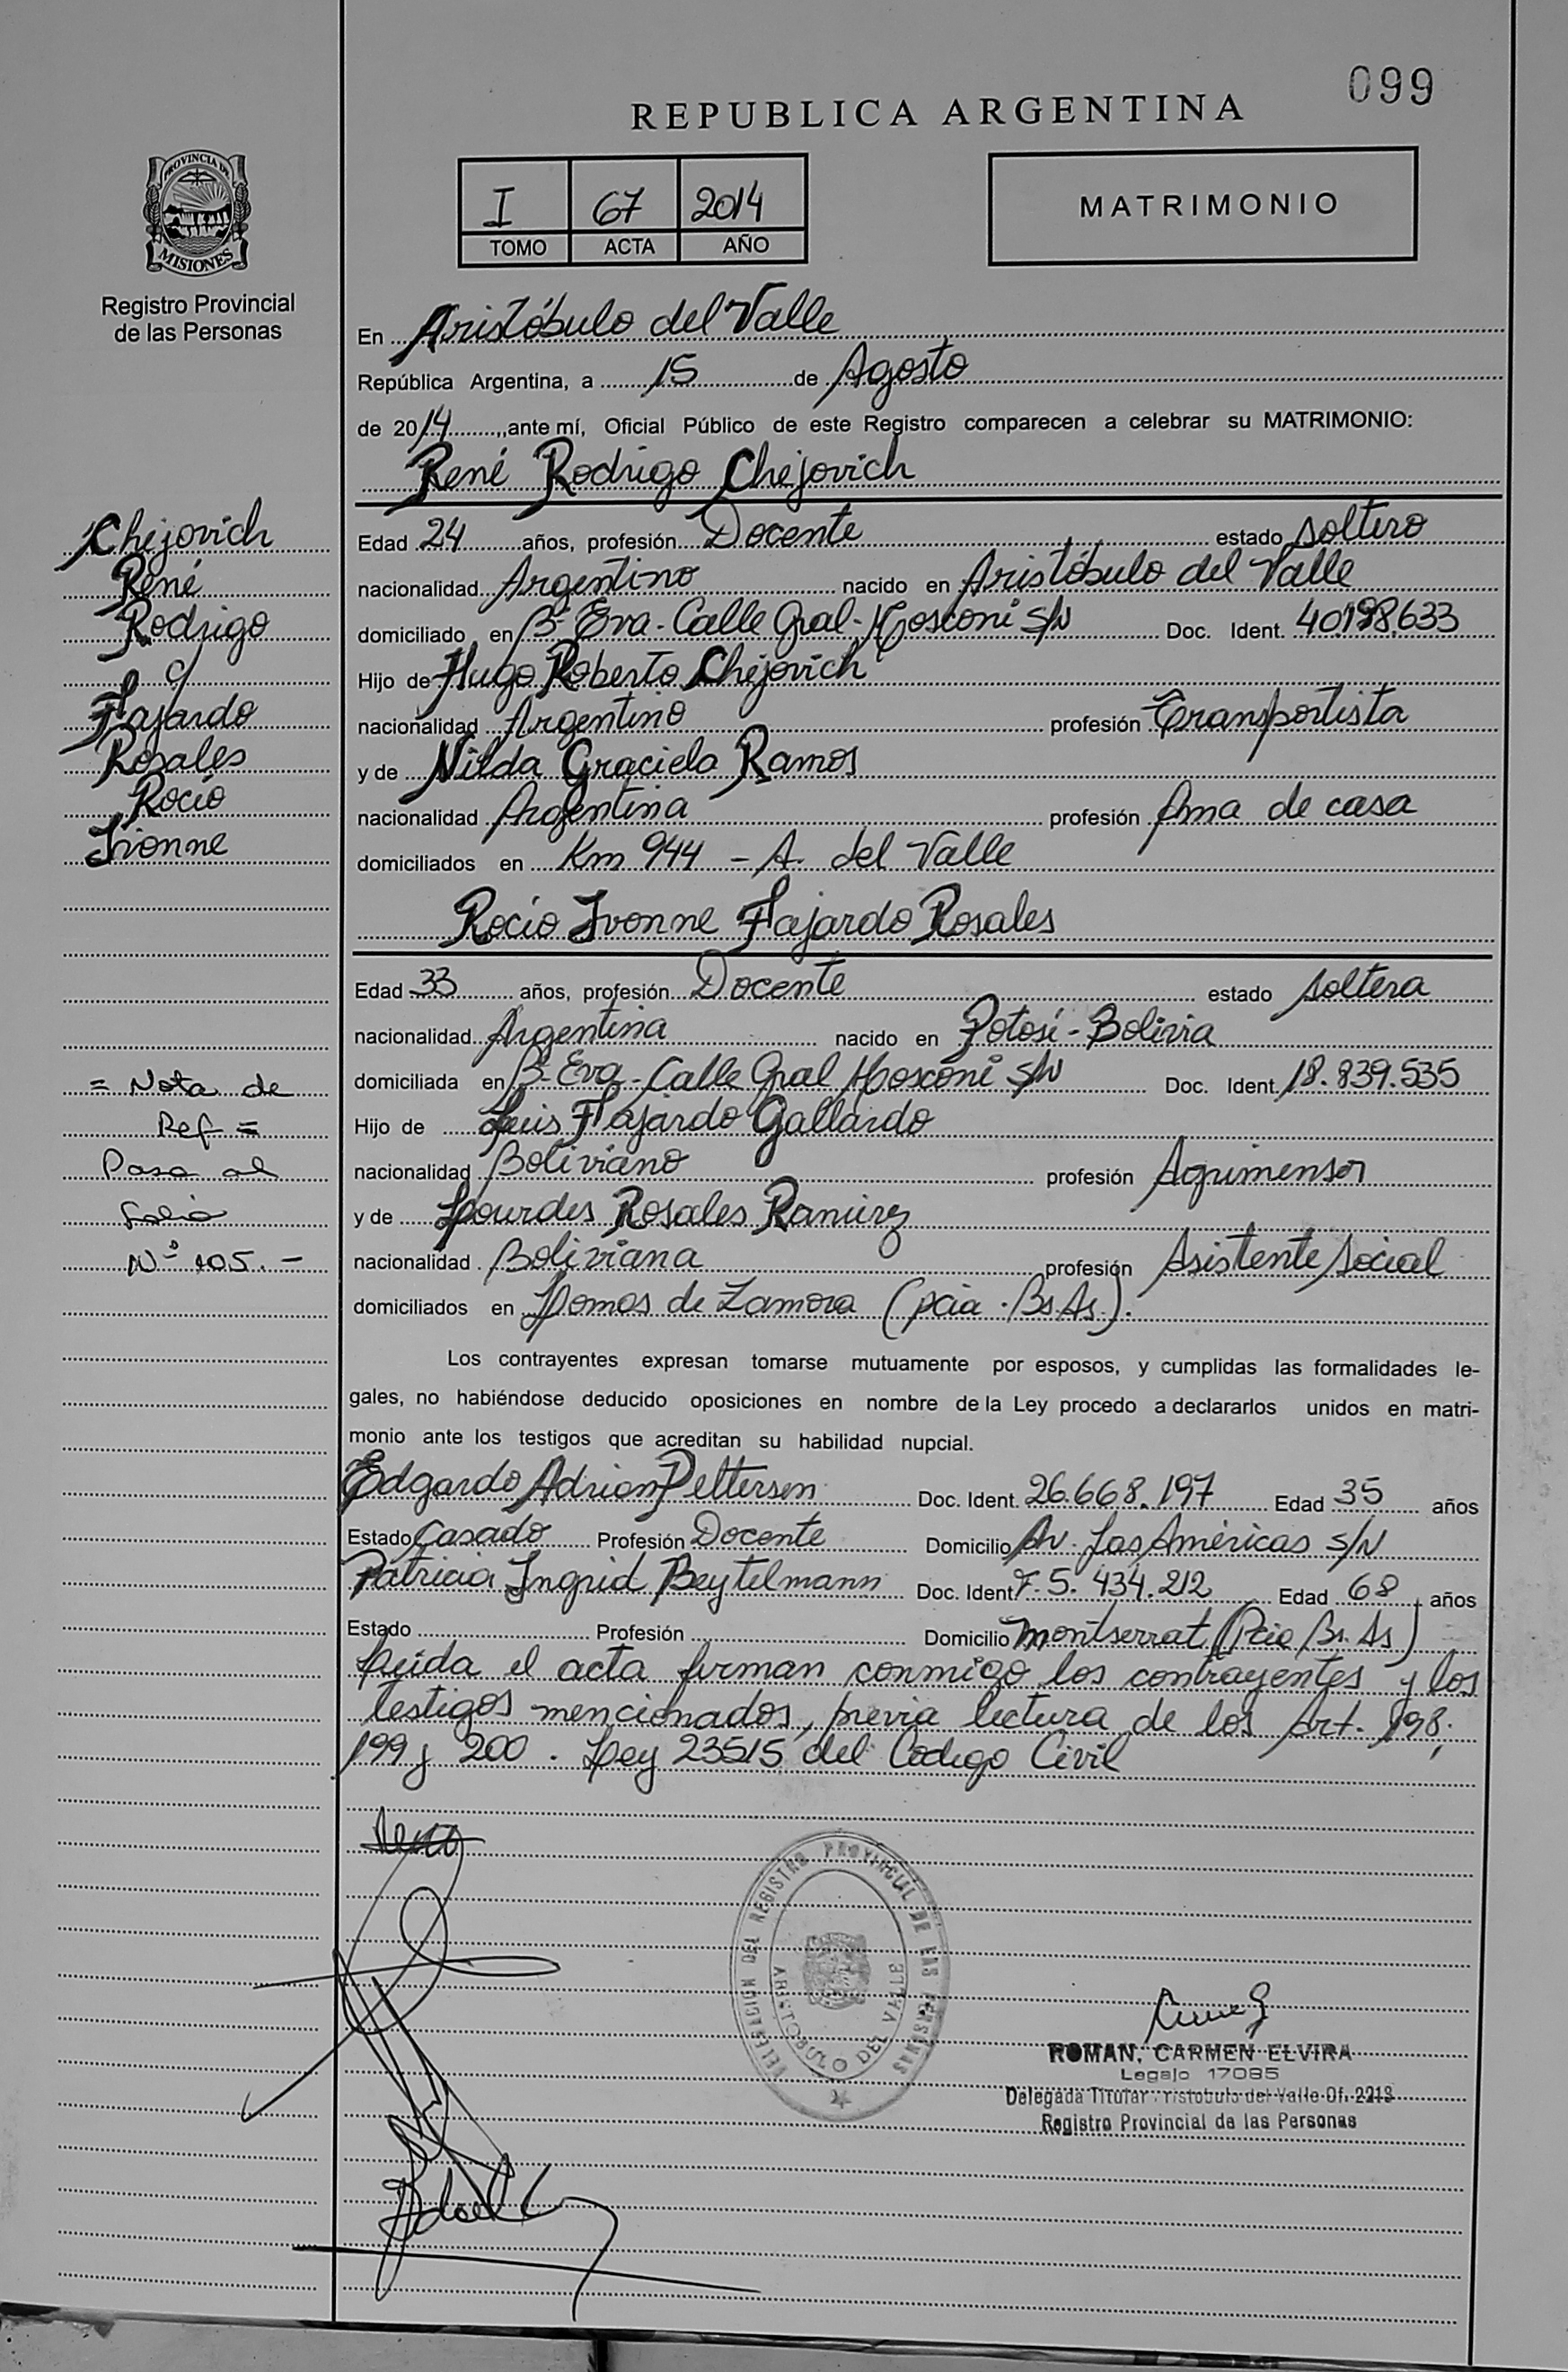 099
REPUBLICA ARGENTINA
PROVINCIA DE
MISIONES
Registro Provincial
de las Personas
I 67 2014
TOMO ACTA AÑO
MATRIMONIO
En Aristóbulo del Valle
República Argentina, a 15 de Agosto
de 2014, ante mí, Oficial Público de este Registro comparecen a celebrar su MATRIMONIO:
René Rodrigo Chejovich
Chejovich
René
Rodrigo
c/
Fajardo
Rosales
Rocío
Ivonne
Edad 24 años, profesión Docente estado soltero
nacionalidad Argentino nacido en Aristóbulo del Valle
domiciliado en Bº Eva - Calle Gral. Mosconi S/N Doc. Ident. 40.198.633
Hijo de Hugo Roberto Chejovich
nacionalidad Argentino profesión Transportista
y de Nilda Graciela Ramos
nacionalidad Argentina profesión Ama de casa
domiciliados en Km 944 - A. del Valle
Rocío Ivonne Fajardo Rosales
Edad 33 años, profesión Docente estado soltera
nacionalidad Argentina nacido en Potosí - Bolivia
domiciliada en Bº Eva - Calle Gral Mosconi S/N Doc. Ident. 18.839.535
Hijo de Luis Fajardo Gallardo
nacionalidad Boliviano profesión Agrimensor
y de Lourdes Rosales Ramirez
nacionalidad Boliviana profesión Asistente Social
domiciliados en Lomas de Zamora (pcia. Bs.As.).
= Nota de
Ref =
Pasa al
folio
Nº 105.-
Los contrayentes expresan tomarse mutuamente por esposos, y cumplidas las formalidades le-
gales, no habiéndose deducido oposiciones en nombre de la Ley procedo a declararlos unidos en matri-
monio ante los testigos que acreditan su habilidad nupcial.
Edgardo Adrian Pettersen Doc. Ident. 26.668.197 Edad 35 años
Estado Casado Profesión Docente Domicilio Av. Las Américas S/N
Patricia Ingrid Beytelmann Doc. Ident. F. 5. 434.212 Edad 68 años
Estado Profesión Domicilio Montserrat (Pcia Bs. As)
Leída el acta firman conmigo los contrayentes y los
testigos mencionados, previa lectura de los Art. 198,
199 y 200. Ley 23515 del Código Civil
DELEGACION DEL REGISTRO PROVINCIAL DE LAS PERSONAS
ARISTOBULO DEL VALLE
ROMAN, CARMEN ELVIRA
Legajo 17085
Delegada Titular ristobulo del Valle Of. 2213
Registro Provincial de las Personas